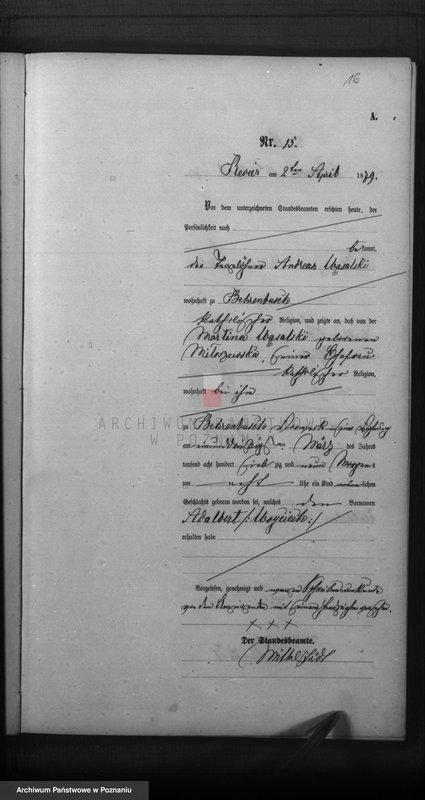 16
A.
Nr. 15.
Revier am 2ten April 1879.
Vor dem unterzeichneten Standesbeamten erschien heute, der
Persönlichkeit nach
bekannt,
der Tagelöhner Andreas
wohnhaft zu Behrenbusch
katholischer Religion, und zeigte an, daß von der
Martina geborenen
seiner Ehefrau
katholischer Religion,
wohnhaft bei ihm
zu Behrenbusch in seiner Wohnung
am März des Jahres
tausend acht hundert siebzig und neun
um acht Uhr ein Kind männlichen
Geschlechts geboren worden sei, welches den Vornamen
Adalbert
erhalten habe
Vorgelesen, genehmigt und wegen
von dem Anzeigenden mit seinem Handzeichen versehen.
+ + +
Der Standesbeamte.
ARCHIWUM PAŃSTWOWE
W POZNANIU
Archiwum Państwowe w Poznaniu